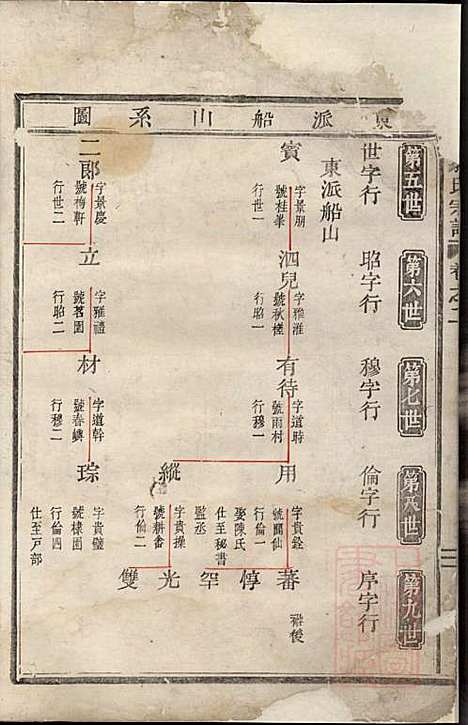 東派船山系圖
氏宗譜 卷之二
第五世
第六世
第七世
第八世
第九世
世字行
昭字行
穆字行
倫字行
序字行
東派船山
賓
字景朋
號桂峯
行世一
泗兒
字雅淮
號秋槎
行昭一
有待
字道時
號雨村
行穆一
用
字貴銓
號閬仙
行倫一
娶陳氏
仕至秘書
監丞
縱
字貴操
號耕畬
行倫二
蕃
衍後
惇
罕
光
雙
二郎
字景慶
號梅軒
行世二
立
字雅禮
號茗園
行昭二
材
字道幹
號春嶙
行穆二
琮
字貴璧
號棣園
行倫四
仕至戸部